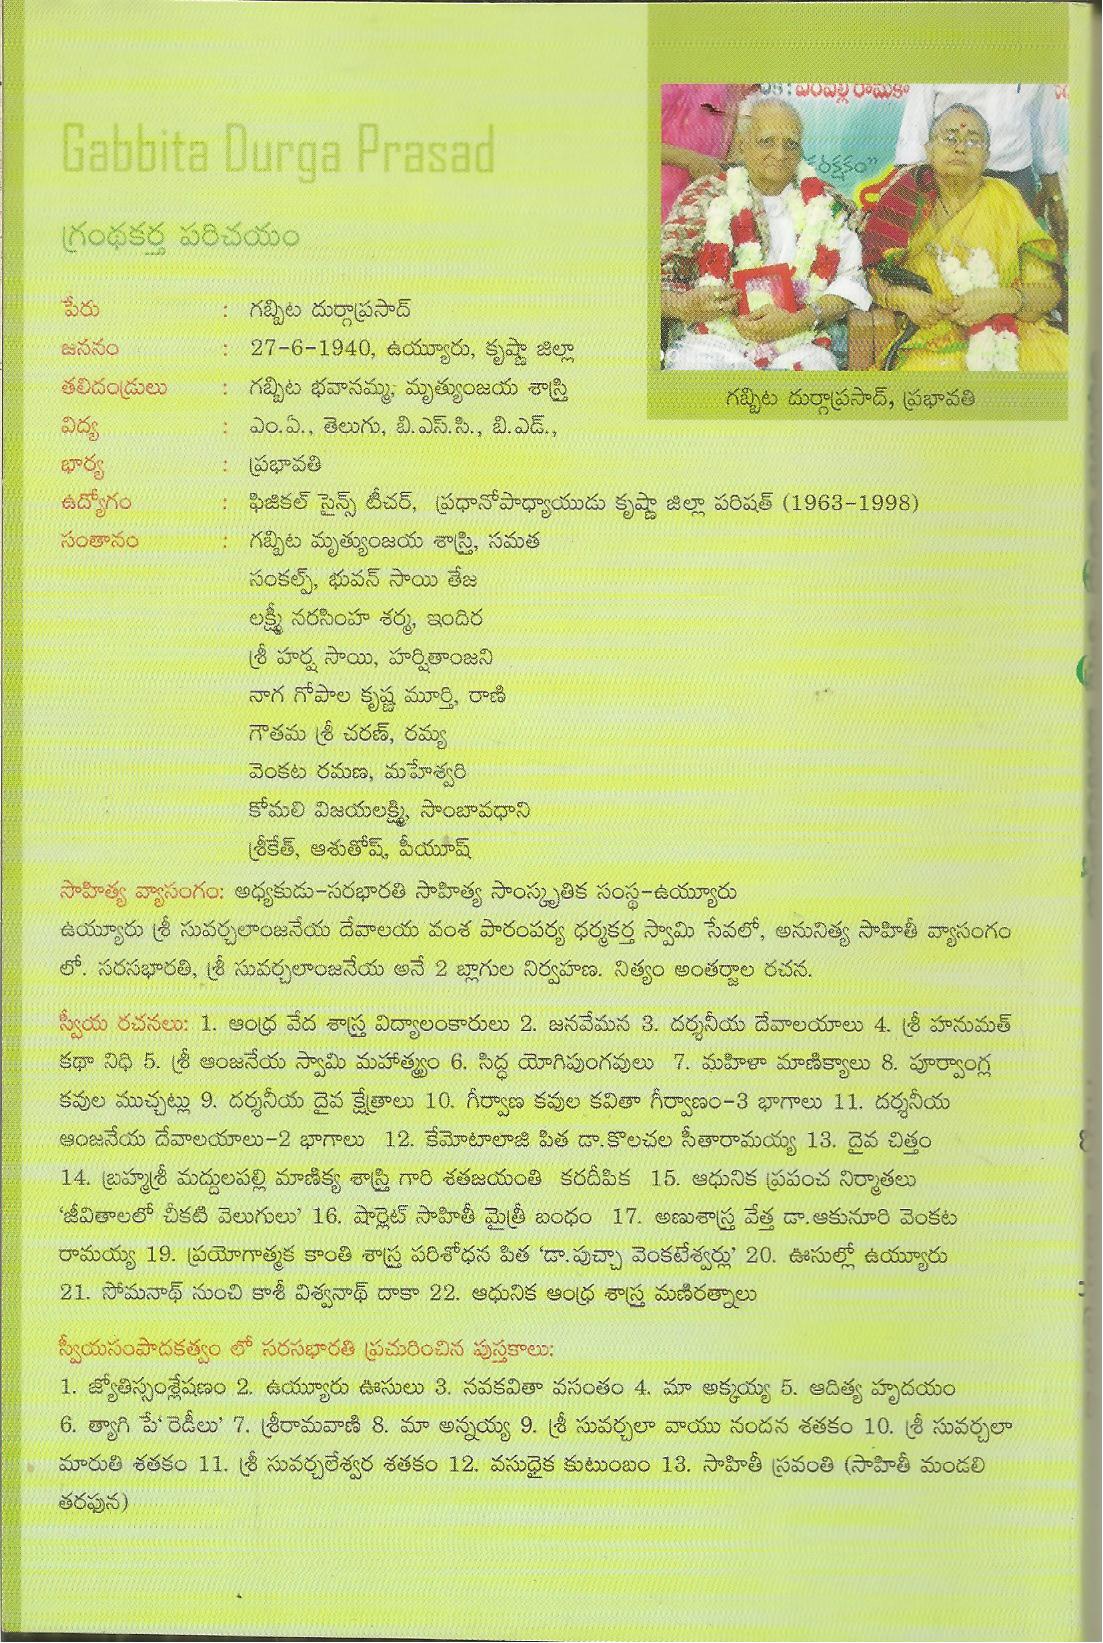 Gabbita Durga Prasad
గ్రంథకర్త పరిచయం
పేరు : గబ్బిట దుర్గాప్రసాద్
జననం : 27-6-1940, ఉయ్యూరు, కృష్ణా జిల్లా
తలిదండ్రులు : గబ్బిట భవానమ్మ, మృత్యుంజయ శాస్త్రి
విద్య : ఎం.ఏ., తెలుగు, బి.ఎస్.సి., బి.ఎడ్.,
భార్య : ప్రభావతి
ఉద్యోగం : ఫిజికల్ సైన్స్ టీచర్, ప్రధానోపాధ్యాయుడు కృష్ణా జిల్లా పరిషత్ (1963-1998)
సంతానం : గబ్బిట మృత్యుంజయ శాస్త్రి, సమత
సంకల్ప్, భువన్ సాయి తేజ
లక్ష్మీ నరసింహ శర్మ, ఇందిర
శ్రీ హర్ష సాయి, హర్షితాంజని
నాగ గోపాల కృష్ణ మూర్తి, రాణి
గౌతమ శ్రీ చరణ్, రమ్య
వెంకట రమణ, మహేశ్వరి
కోమలి విజయలక్ష్మి, సాంబావధాని
శ్రీకేత్, ఆశుతోష్, పీయూష్
గబ్బిట దుర్గాప్రసాద్, ప్రభావతి
సాహిత్య వ్యాసంగం: అధ్యకుడు-సరభారతి సాహిత్య సాంస్కృతిక సంస్థ-ఉయ్యూరు
ఉయ్యూరు శ్రీ సువర్చలాంజనేయ దేవాలయ వంశ పారంపర్య ధర్మకర్త స్వామి సేవలో, అనునిత్య సాహితీ వ్యాసంగం
లో. సరసభారతి, శ్రీ సువర్చలాంజనేయ అనే 2 బ్లాగుల నిర్వహణ. నిత్యం అంతర్జాల రచన.
స్వీయ రచనలు: 1. ఆంధ్ర వేద శాస్త్ర విద్యాలంకారులు 2. జనవేమన 3. దర్శనీయ దేవాలయాలు 4. శ్రీ హనుమత్
కథా నిధి 5. శ్రీ ఆంజనేయ స్వామి మహాత్మ్యం 6. సిద్ధ యోగిపుంగవులు 7. మహిళా మాణిక్యాలు 8. పూర్వాంగ్ల
కవుల ముచ్చట్లు 9. దర్శనీయ దైవ క్షేత్రాలు 10. గీర్వాణ కవుల కవితా గీర్వాణం-3 భాగాలు 11. దర్శనీయ
ఆంజనేయ దేవాలయాలు-2 భాగాలు 12. కేమోటాలాజి పిత డా.కొలచల సీతారామయ్య 13. దైవ చిత్తం
14. బ్రహ్మశ్రీ మద్దులపల్లి మాణిక్య శాస్త్రి గారి శతజయంతి కరదీపిక 15. ఆధునిక ప్రపంచ నిర్మాతలు
‘జీవితాలలో చీకటి వెలుగులు’ 16. షార్లెట్ సాహితీ మైత్రీ బంధం 17. అణుశాస్త్ర వేత్త డా.ఆకునూరి వెంకట
రామయ్య 19. ప్రయోగాత్మక కాంతి శాస్త్ర పరిశోధన పిత ‘డా.పుచ్చా వెంకటేశ్వర్లు’ 20. ఊసుల్లో ఉయ్యూరు
21. సోమనాథ్ నుంచి కాశీ విశ్వనాథ్ దాకా 22. ఆధునిక ఆంధ్ర శాస్త్ర మణిరత్నాలు
స్వీయసంపాదకత్వం లో సరసభారతి ప్రచురించిన పుస్తకాలు:
1. జ్యోతిస్సంశ్లేషణం 2. ఉయ్యూరు ఊసులు 3. నవకవితా వసంతం 4. మా అక్కయ్య 5. ఆదిత్య హృదయం
6. త్యాగి పే‘రెడీలు’ 7. శ్రీరామవాణి 8. మా అన్నయ్య 9. శ్రీ సువర్చలా వాయు నందన శతకం 10. శ్రీ సువర్చలా
మారుతి శతకం 11. శ్రీ సువర్చలేశ్వర శతకం 12. వసుధైక కుటుంబం 13. సాహితీ స్రవంతి (సాహితీ మండలి
తరఫున)